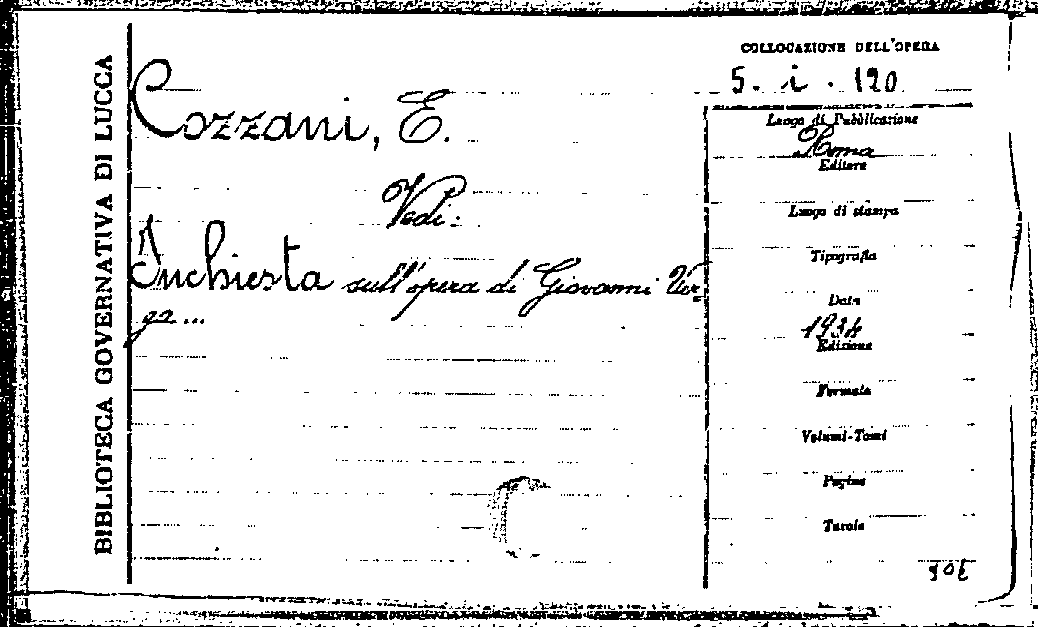 BIBLIOTECA GOVERNATIVA DI LUCCA
Cozzani, E.
Vedi:
Inchiesta sull'opera di Giovanni Ver-
ga...
COLLOCAZIONE DELL'OPERA
5. i. 120
Luogo di Pubblicazione
Roma
Editore
Luogo di stampa
Tipografia
Data
1934
Edizione
Formato
Volumi-Tomi
Pagine
Tavole